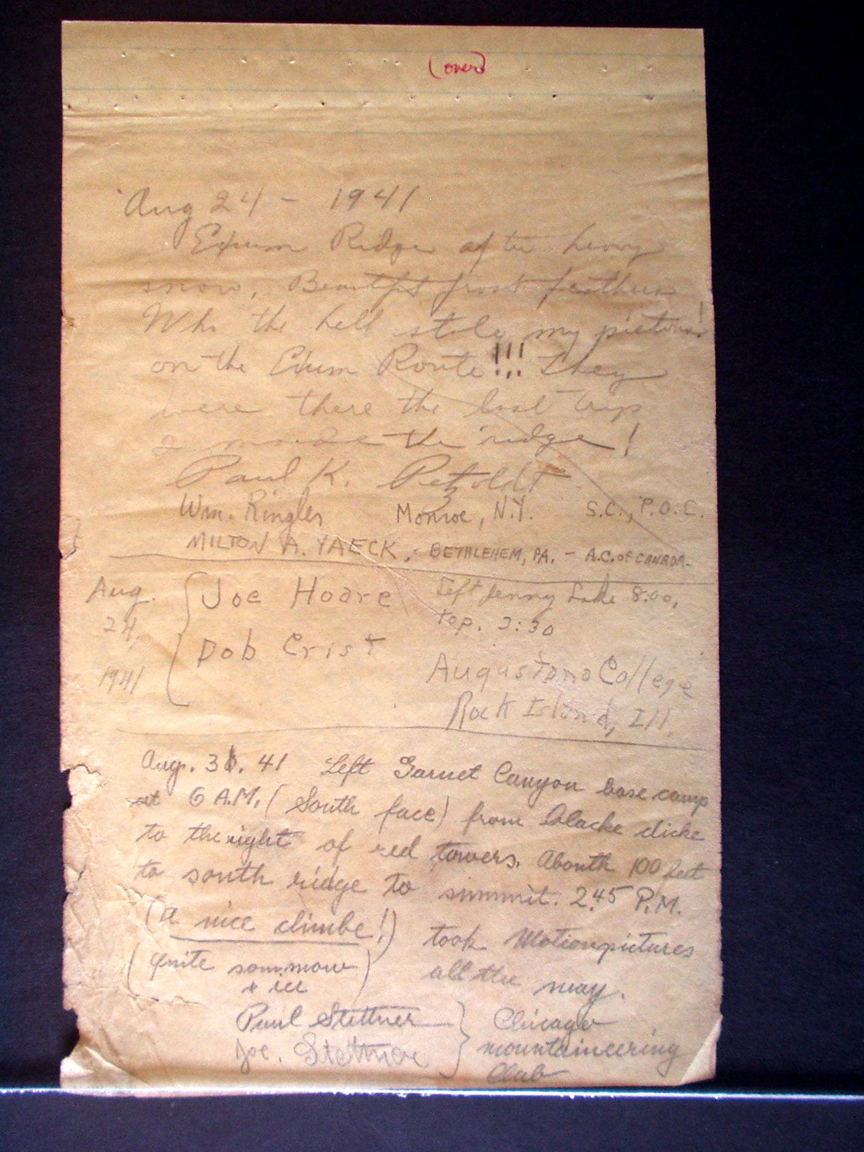 (over)
Aug 24 - 1941
Exum Ridge after heavy
snow, Beautful frost feathers
Who the hell stole my pictons!
on the Exum Route!!! They
were there the last trip
I made the ridge!
Paul K. Petzoldt
Wm. Ringles Monroe, N.Y. S.C., P.O.C.
MILTON A. YAECK, - BETHLEHEM, PA. - A.C. OF CANADA.
Aug. 24, 1941
Joe Hoare Left Jenny Lake 8:00,
top. 2:30
Bob Crist
Augustana College
Rock Island, Ill.
Aug. 31. 41 Left Garnet Canyon base camp
at 6 A.M. (South face) from blacke dicke
to the right of red towers. Abouth 100 feet
to south ridge to summit. 2.45 P.M.
(a nice climbe!) took Motionpictures
(quite som snow all the way.
+ ice)
Paul Stettner } Chicago
Joe. Stettner mountaineering
Club